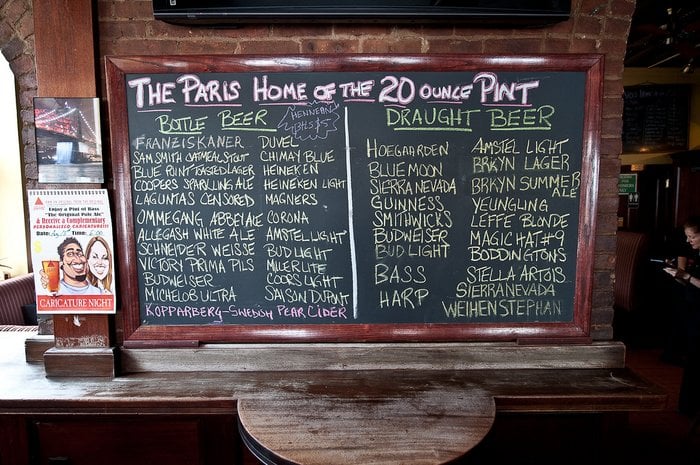 THE PARIS HOME OF THE 20 OUNCE PINT
BOTTLE BEER
FRANZISKANER
SAM SMITH OATMEAL STOUT
BLUE POINT TOASTED LAGER
COOPERS SPARKLING ALE
LAGUNTAS CENSORED
OMMEGANG ABBEY ALE
ALLEGASH WHITE ALE
SCHNEIDER WEISSE
VICTORY PRIMA PILS
BUDWEISER
MICHELOB ULTRA
DUVEL
CHIMAY BLUE
HEINEKEN
HEINEKEN LIGHT
MAGNERS
CORONA
AMSTEL LIGHT
BUD LIGHT
MILLER LITE
COORS LIGHT
SAISON DUPONT
KOPPARBERG-SWEDISH PEAR CIDER
DRAUGHT BEER
HOEGAARDEN
BLUE MOON
SIERRA NEVADA
GUINNESS
SMITHWICKS
BUDWEISER
BUD LIGHT
BASS
HARP
AMSTEL LIGHT
BRKYN LAGER
BRKYN SUMMER ALE
YEUNGLING
LEFFE BLONDE
MAGIC HAT #9
BODDINGTONS
STELLA ARTOIS
SIERRA NEVADA
WEIHEN STEPHAN
Enjoy a Pint of Bass
"The Original Pale Ale"
& Receive a Complimentary
PERSONALIZED CARICATURE!!!
Date:
Time:
CARICATURE NIGHT